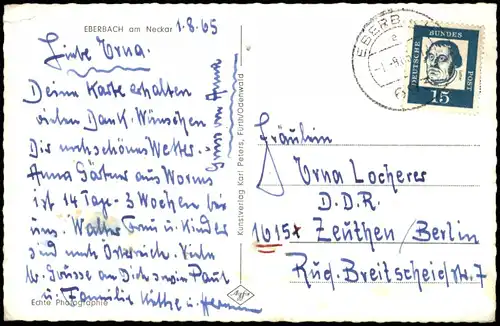 EBERBACH am Neckar
1.8.65
Liebe Erna.
Deine Karte erhalten
vielen Dank. Wünschen
Dir noch schönes Wetter.
Anna Gärtner aus Worms
ist 14 Tage - 3 Wochen bei
uns. Walter Frau u. Kinder
sind nach Österreich. Viele
Grüsse an Dich sowie Paul
u. Familie Käthe u. Hermann
Gruss von Anna
Echte Photographie
Kunstverlag Karl Peters, Fürth/Odenwald
Agfa
EBERB
DEUTSCHE BUNDESPOST
15
Fräulein
Erna Locherer
D.D.R.
1615 Zeuthen/Berlin
Rud. Breitscheidstr. 7